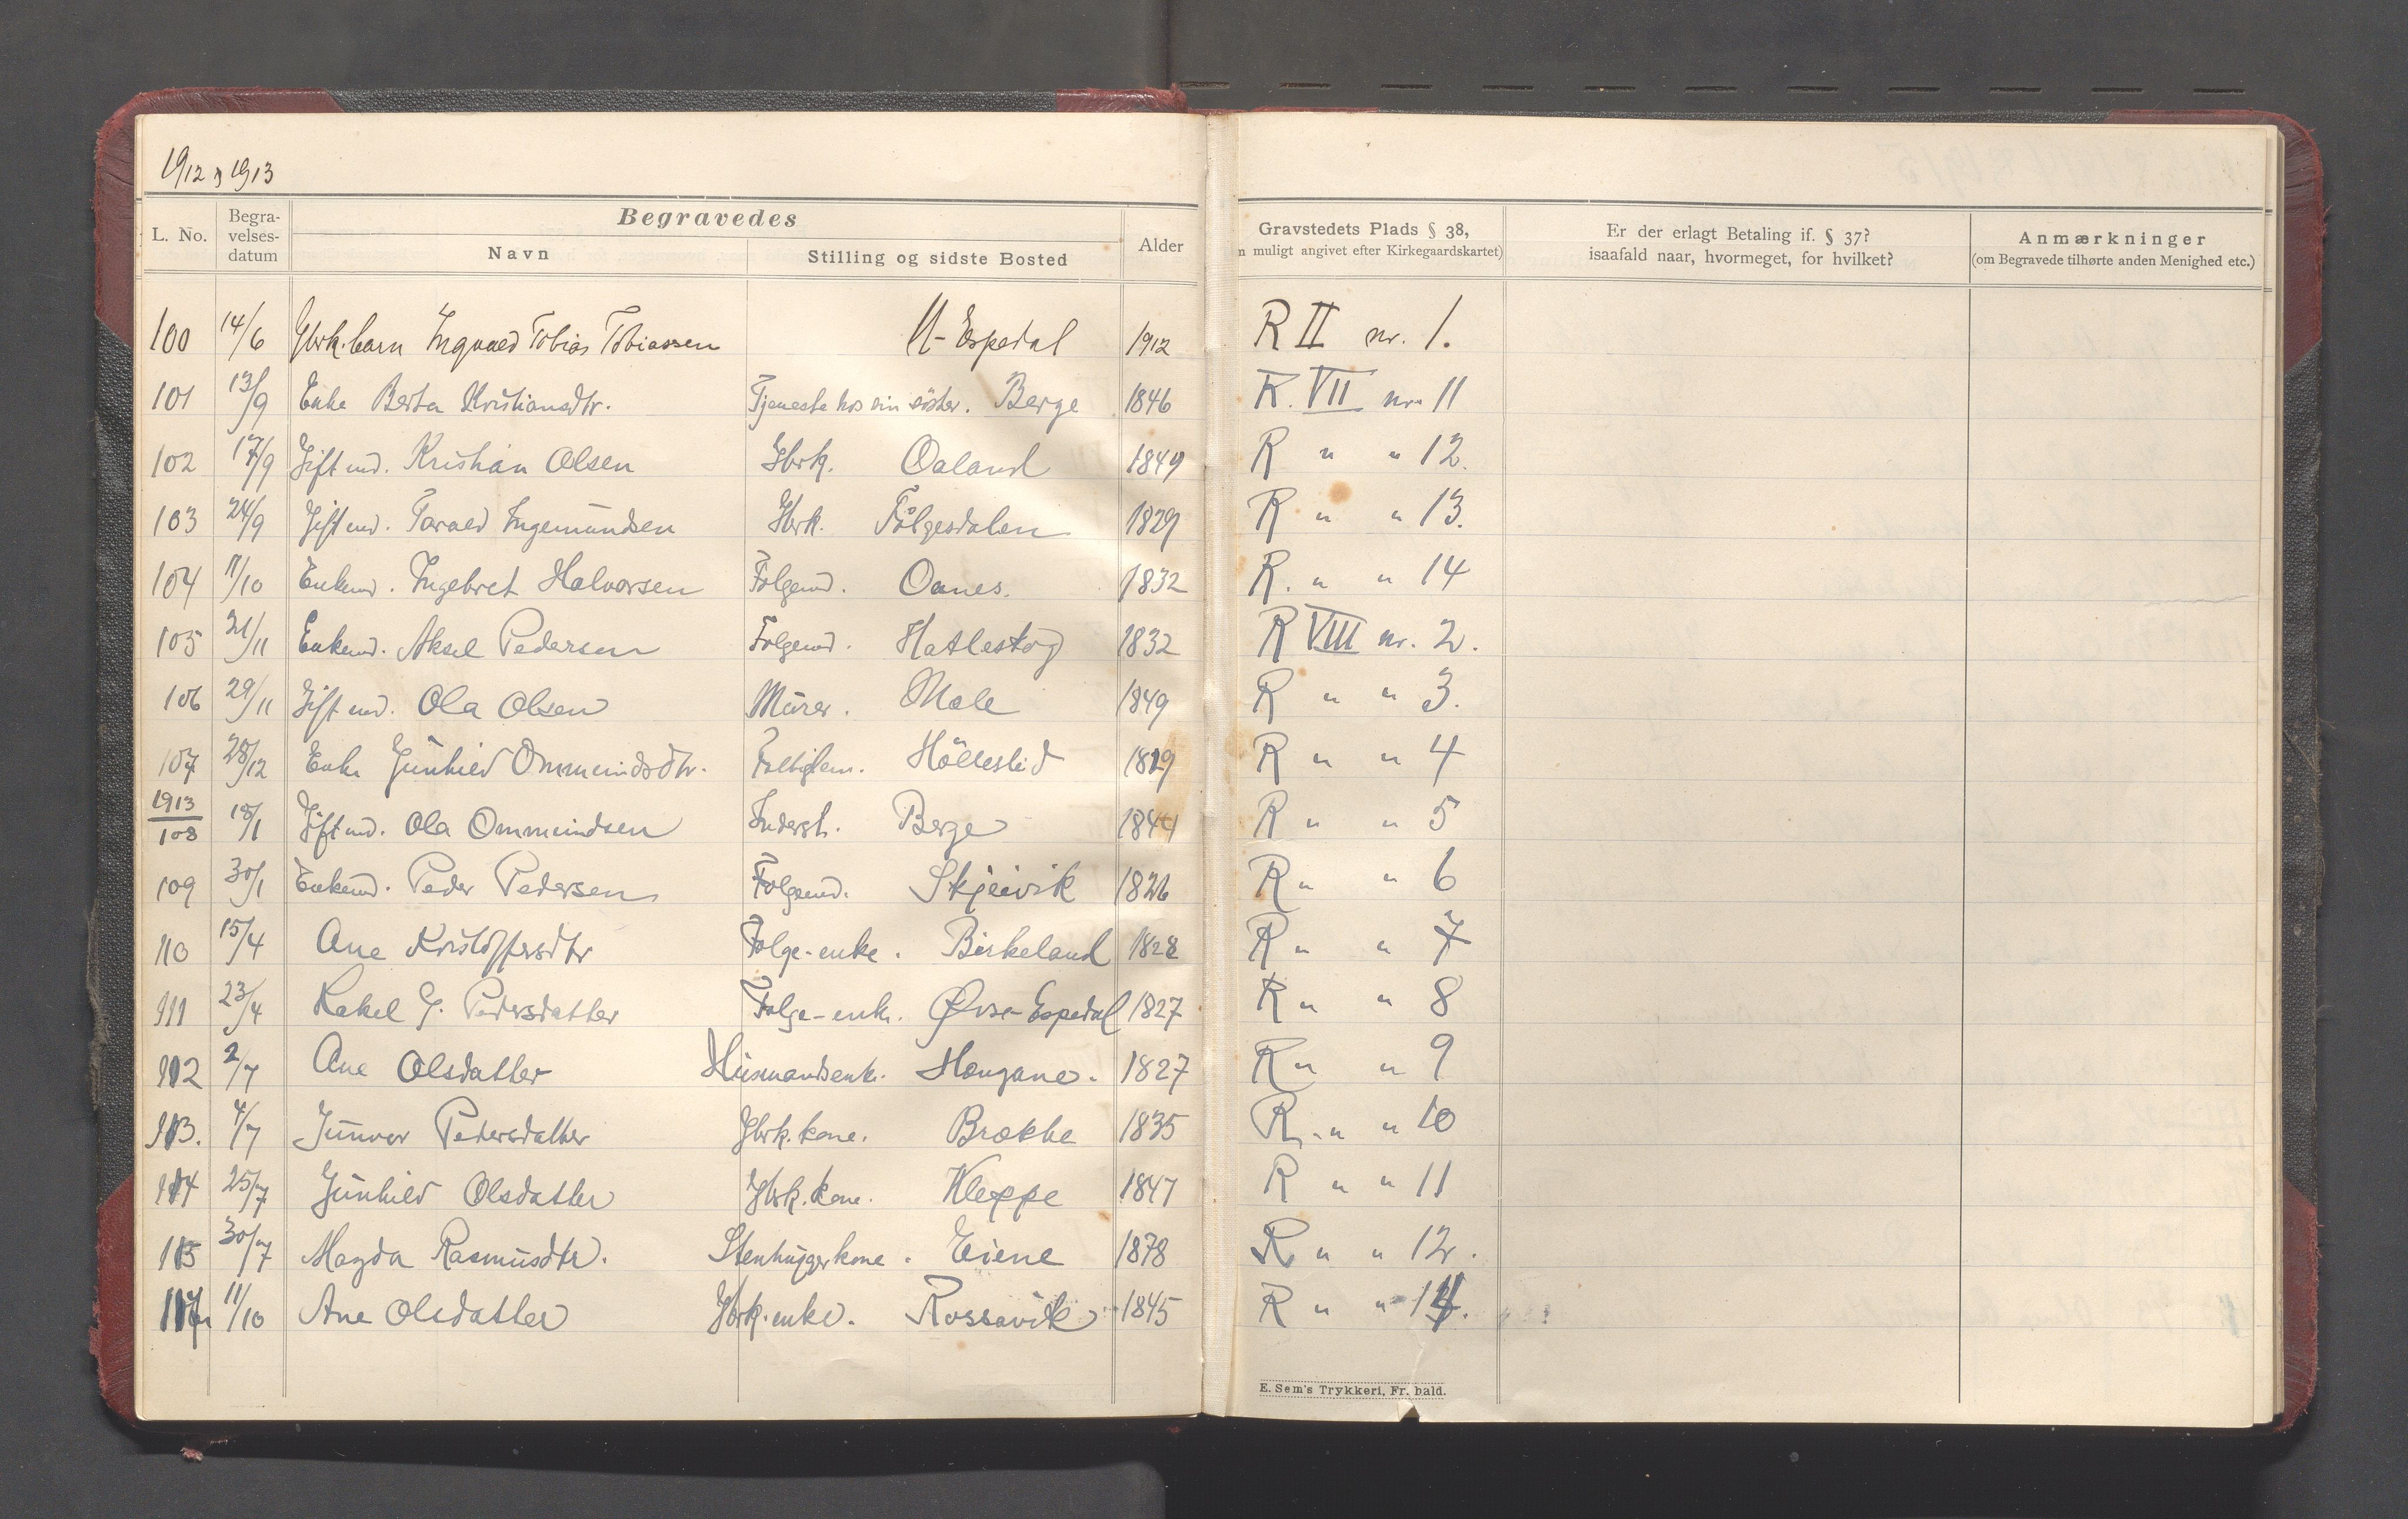 1912 og 1913
L. No. Begra-velses-datum Begravedes Navn Stilling og sidste Bosted Alder Gravstedets Plads § 38, muligt angivet efter Kirkegaardskartet) Er der erlagt Betaling if. § 37? isaafald naar, hvormeget, for hvilket? Anmærkninger (om Begravede tilhørte anden Menighed etc.)
100 14/6 Gbrk. barn Ingvald Tobias Tobiassen U-Espedal 1912 R II nr. 1.
101 13/9 Enke Berta Kristiansdtr. Tjeneste hos sin söster. Berge 1846 R. VII nr. 11
102 17/9 Gift md. Kristian Olsen Gbrk. Oaland 1849 R " " 12.
103 24/9 Gift md. Tarald Ingemundsen Gbrk. Fölgesdalen 1829 R " " 13.
104 11/10 Enkemd. Ingebret Halvorsen Folgemd. Oanes. 1832 R. " " 14
105 21/11 Enkemd. Aksel Pedersen Folgemd. Hatleskog 1832 R VIII nr. 2.
106 29/11 Gift md. Ola Olsen Murer. Mæle 1849 R " " 3.
107 28/12 Enke Gunhild Ommundsdtr. Fattiglem. Hölleslid 1819 R " " 4
1913
108 18/1 Gift md. Ola Ommundsen Inderst. Berge 1844 R " " 5
109 30/1 Enkemd. Peder Pedersen Folgemd. Skjeivik 1826 R " " 6
110 15/4 Ane Kristoffersdtr Folge-enke. Birkeland 1828 R " " 7
111 23/4 Rakel G. Pedersdatter Folge-enk. Øvre-Espedal 1827 R " " 8
112 2/7 Ane Olsdatter Husmandsenk. Haugane. 1827 R " " 9
113. 4/7 Gunvor Pedersdatter Gbrk. kone. Brække 1835 R. " " 10
114 25/7 Gunhild Olsdatter Gbrk. kone. Kleppe 1847 R " " 11
115 30/7 Magda Rasmusdtr. Stenhuggerkone. Eiene 1878 R " " 12.
11/10 Ane Olsdatter Gbrk. enke. Rossavik 1845 R " " 14.
E. Sem's Trykkeri, Fr. hald.